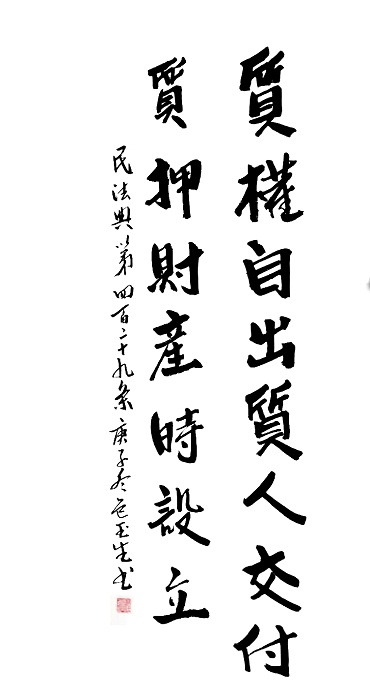 質權自出質人交付
質押財產時設立
民法典第四百二十九条庚子冬包玉生书